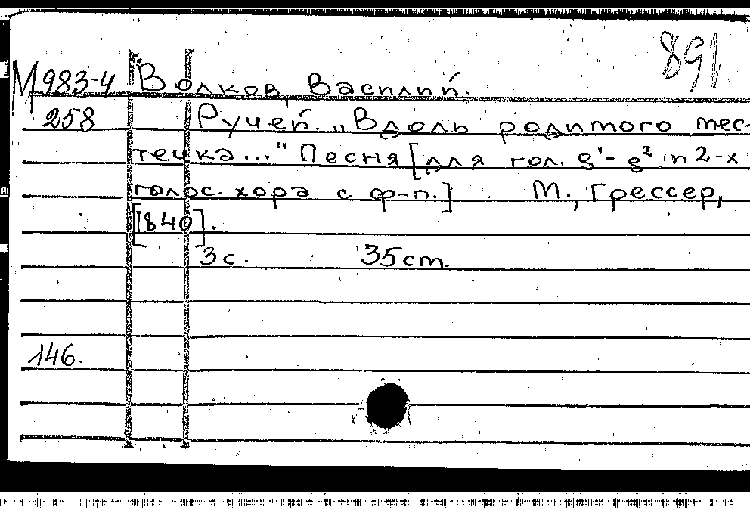 891
М 983-4 Волков, Василий.
258 Ручей. „Вдоль родимого мес-
течка..." Песня [для гол. g¹- g² и 2-х
голос. хора с ф-п.] М., Грессер,
[1840].
3 с. 35 cm.
146.